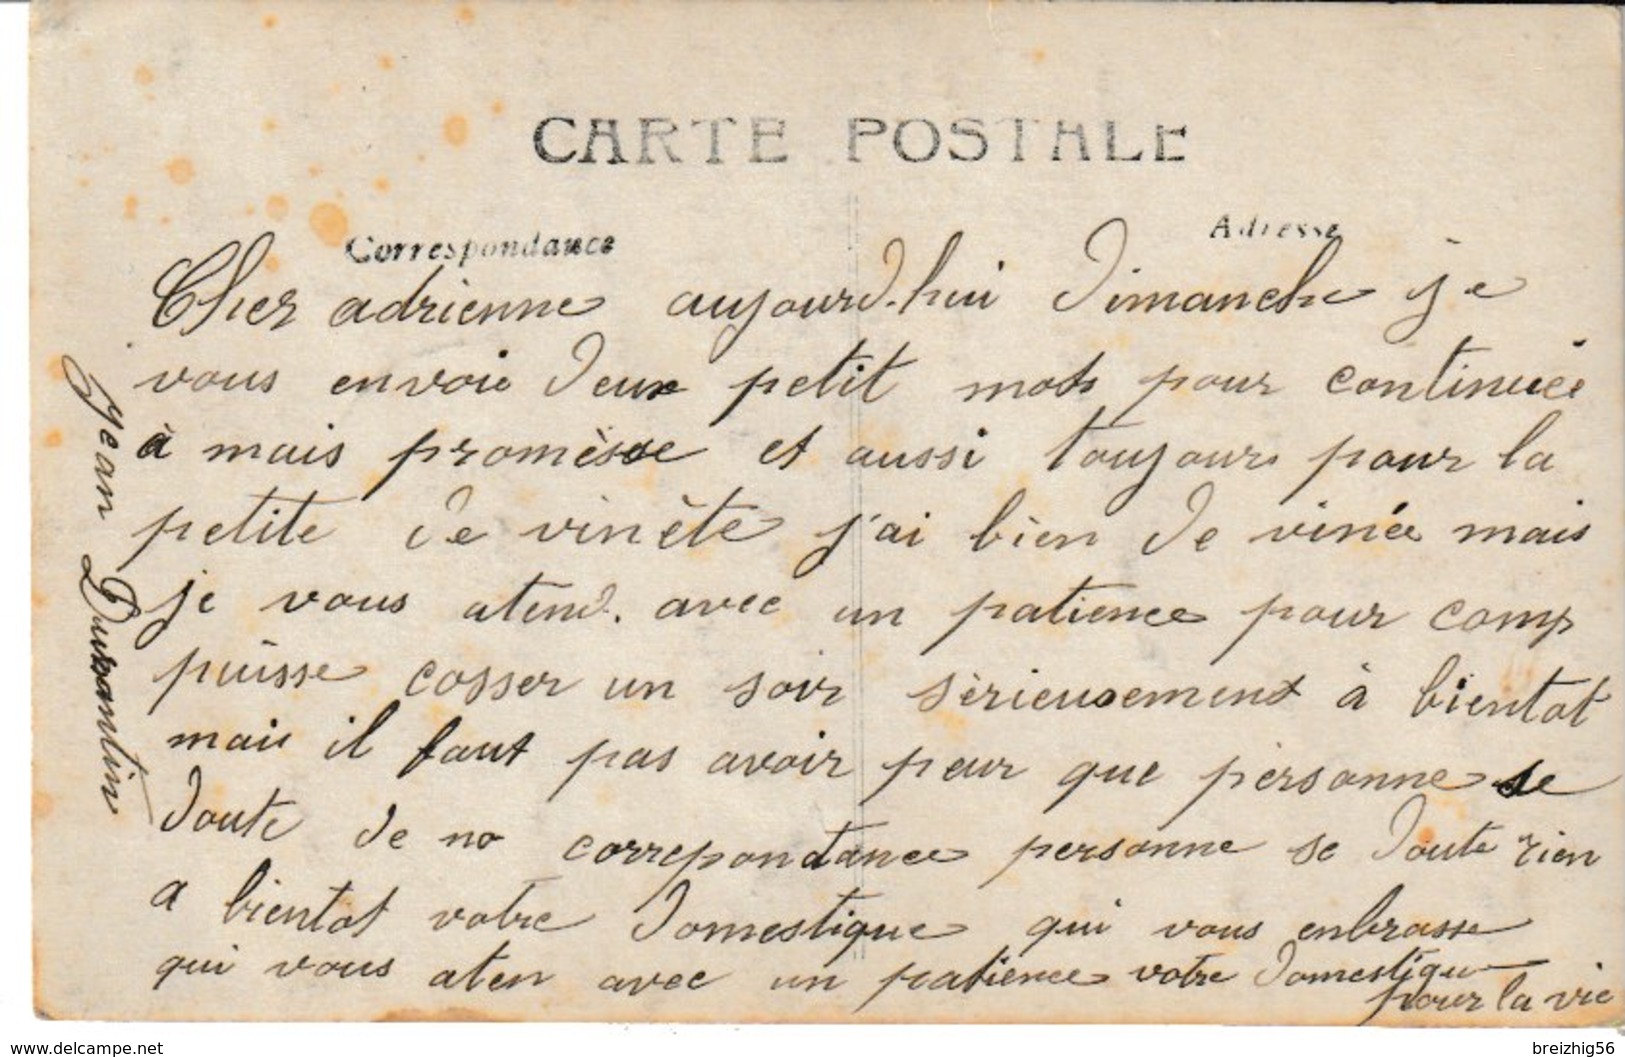 CARTE POSTALE
Correspondance
Adresse
Cher adrienne aujourd'hui Dimanche je
vous envoie deux petit mots pour continuée
à mais promèsse et aussi toujours pour la
petite de vinète j'ai bien de vinée mais
je vous atend. avec un patience pour comp
puisse cosser un soir sèrieusement à bientot
mais il faut pas avoir peur que pèrsonne se
doute de no correpondance personne se doute rien
a bientot votre domestique qui vous enbrasse
qui vous aten avec un patience votre domestique
pour la vie
jean
www.delcampe.net
breizhig56